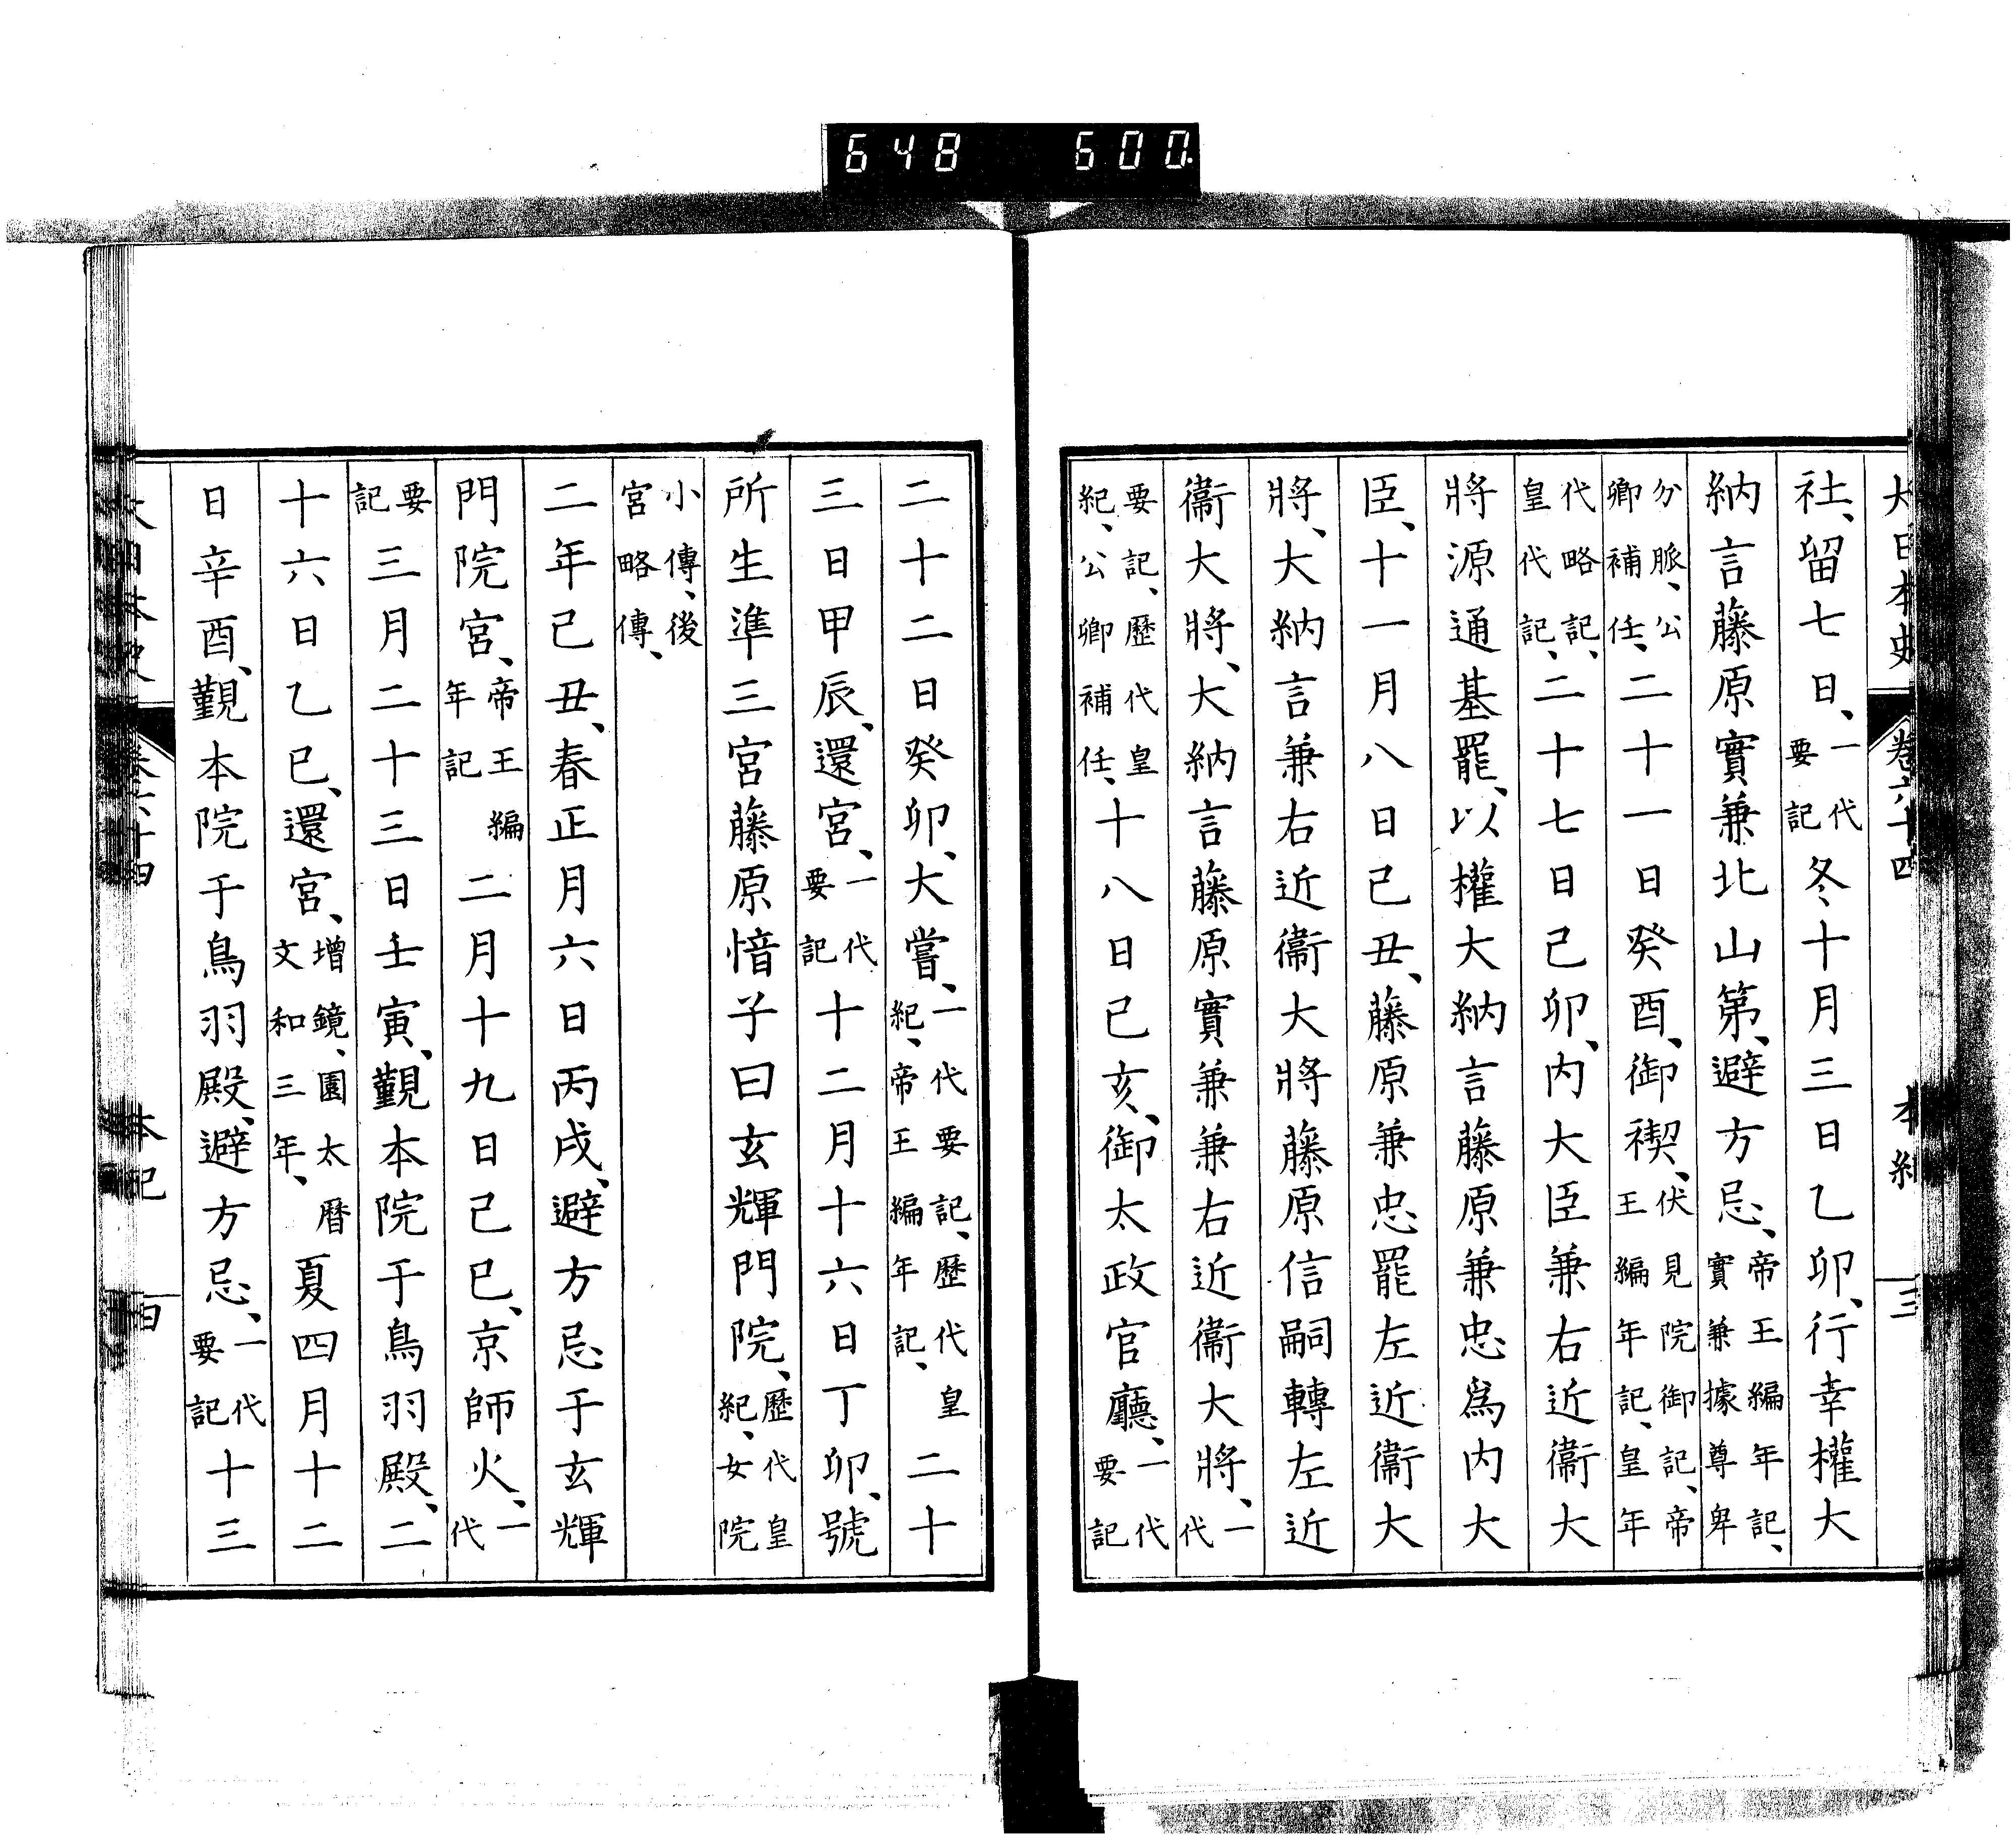 648 600.
大日本史 卷六十四 本紀 三
社、留七日、一代要記冬十月三日乙卯、行幸權大
納言藤原實兼北山第、避方忌、帝王編年記、實兼據尊卑
分脈、公卿補任、二十一日癸酉、御禊、伏見院御記、帝王編年記、皇年
代略記、皇代記、二十七日己卯、内大臣兼右近衞大
將源通基罷、以權大納言藤原兼忠爲内大
臣、十一月八日己丑、藤原兼忠罷左近衞大
將、大納言兼右近衞大將藤原信嗣轉左近
衞大將、大納言藤原實兼兼右近衞大將、一代
要記、歷代皇紀、公卿補任、十八日己亥、御太政官廳、一代要記
二十二日癸卯、大嘗、一代要記、歷代皇紀、帝王編年記、二十
三日甲辰、還宮、一代要記十二月十六日丁卯、號
所生準三宮藤原愔子曰玄輝門院、歷代皇紀、女院
小傳、後宮略傳、
二年己丑、春正月六日丙戌、避方忌于玄輝
門院宮、帝王編年記二月十九日己巳、京師火、一代
要記三月二十三日壬寅、覲本院于鳥羽殿、二
十六日乙巳、還宮、增鏡、園太曆文和三年、夏四月十二
日辛酉、覲本院于鳥羽殿、避方忌、一代要記十三
大日本史 卷六十四 本紀 四